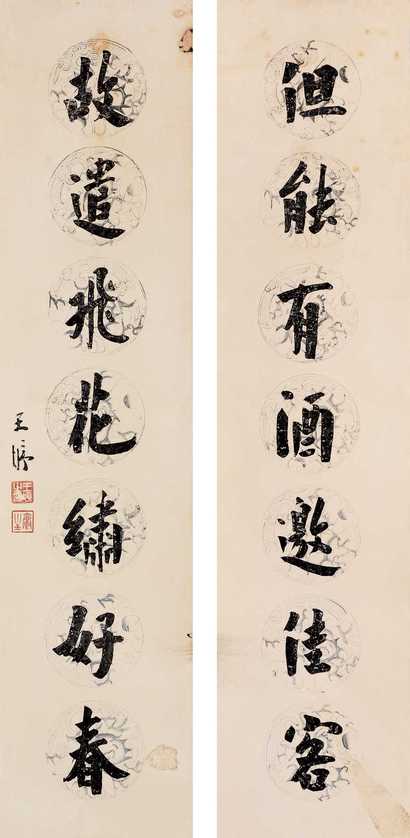 但能有酒邀佳客
故遣飛花繡好春